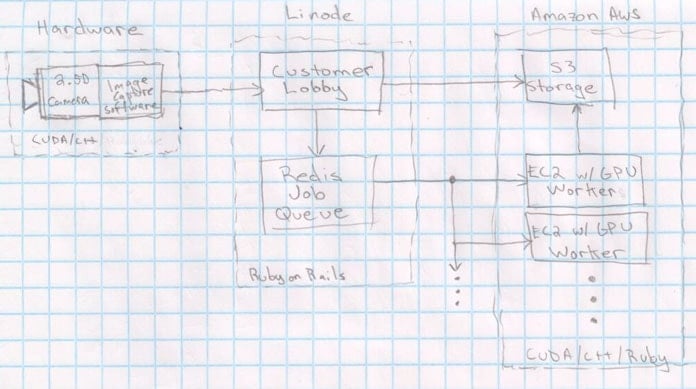 Hardware
Linode
Amazon AWS
2.5D
Camera
Image
Capture
Software
CUDA/C++
Customer
Lobby
S3
Storage
Redis
Job
Queue
EC2 w/GPU
Worker
EC2 w/GPU
Worker
Ruby on Rails
CUDA/C++/Ruby